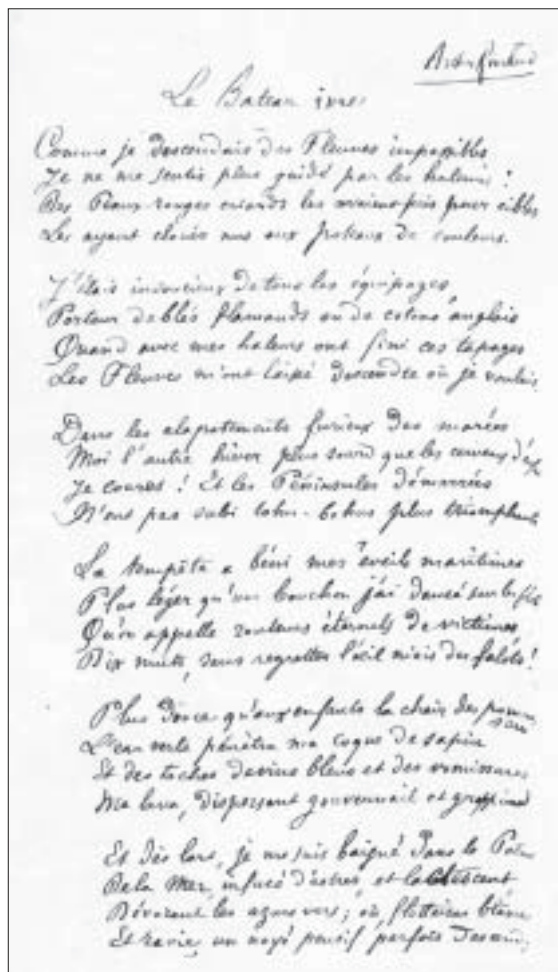 Arthur Rimbaud
Le Bateau ivre
Comme je descendais des Fleuves impassibles
Je ne me sentis plus guidé par les haleurs :
Des Peaux rouges criards les avaient pris pour cibles
Les ayant cloués nus aux poteaux de couleurs.
J'étais insoucieux de tous les équipages,
Porteur de blés flamands ou de cotons anglais
Quand avec mes haleurs ont fini ces tapages
Les Fleuves m'ont laissé descendre où je voulais
Dans les clapotements furieux des marées
Moi l'autre hiver plus sourd que les cerveaux
Je courus ! Et les Péninsules démarrées
N'ont pas subi tohu-bohus plus triomphants
La tempête a béni mes éveils maritimes
Plus léger qu'un bouchon j'ai dansé sur les
Qu'on appelle rouleurs éternels de victimes
Dix nuits, sans regretter l'œil niais des falots !
Plus douce qu'aux enfants la chair des pommes sures
L'eau verte pénétra ma coque de sapin
Et des taches de vins bleus et des vomissures
Me lava, dispersant gouvernail et grappin
Et dès lors, je me suis baigné dans le
De la Mer, infusé d'astres, et lactescent
Dévorant les azurs verts ; où, flottaison blême
Et ravie, un noyé pensif parfois descend ;